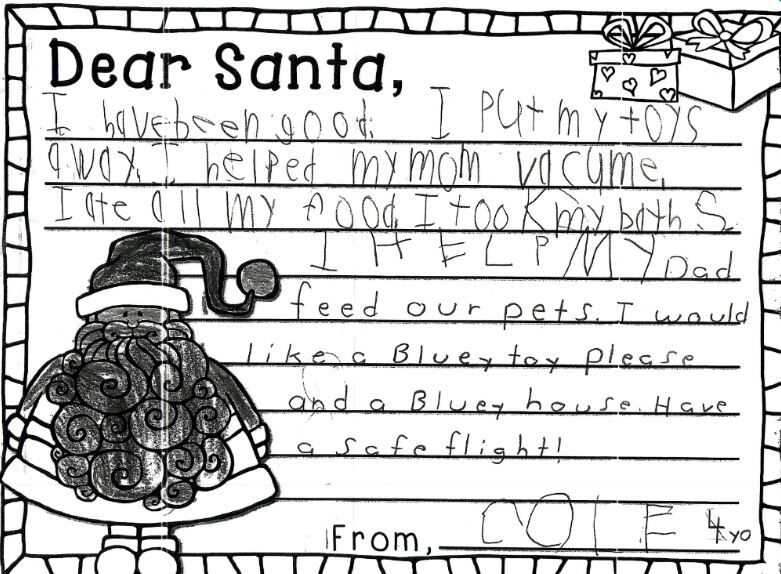 Dear Santa,
I have been good. I put my toys
away. I helped my mom vacyme.
I ate all my food. I took my baths.
I HELP MY Dad
feed our pets. I would
like a Bluey toy please
and a Bluey house. Have
a safe flight!
From, COlE 4 yo